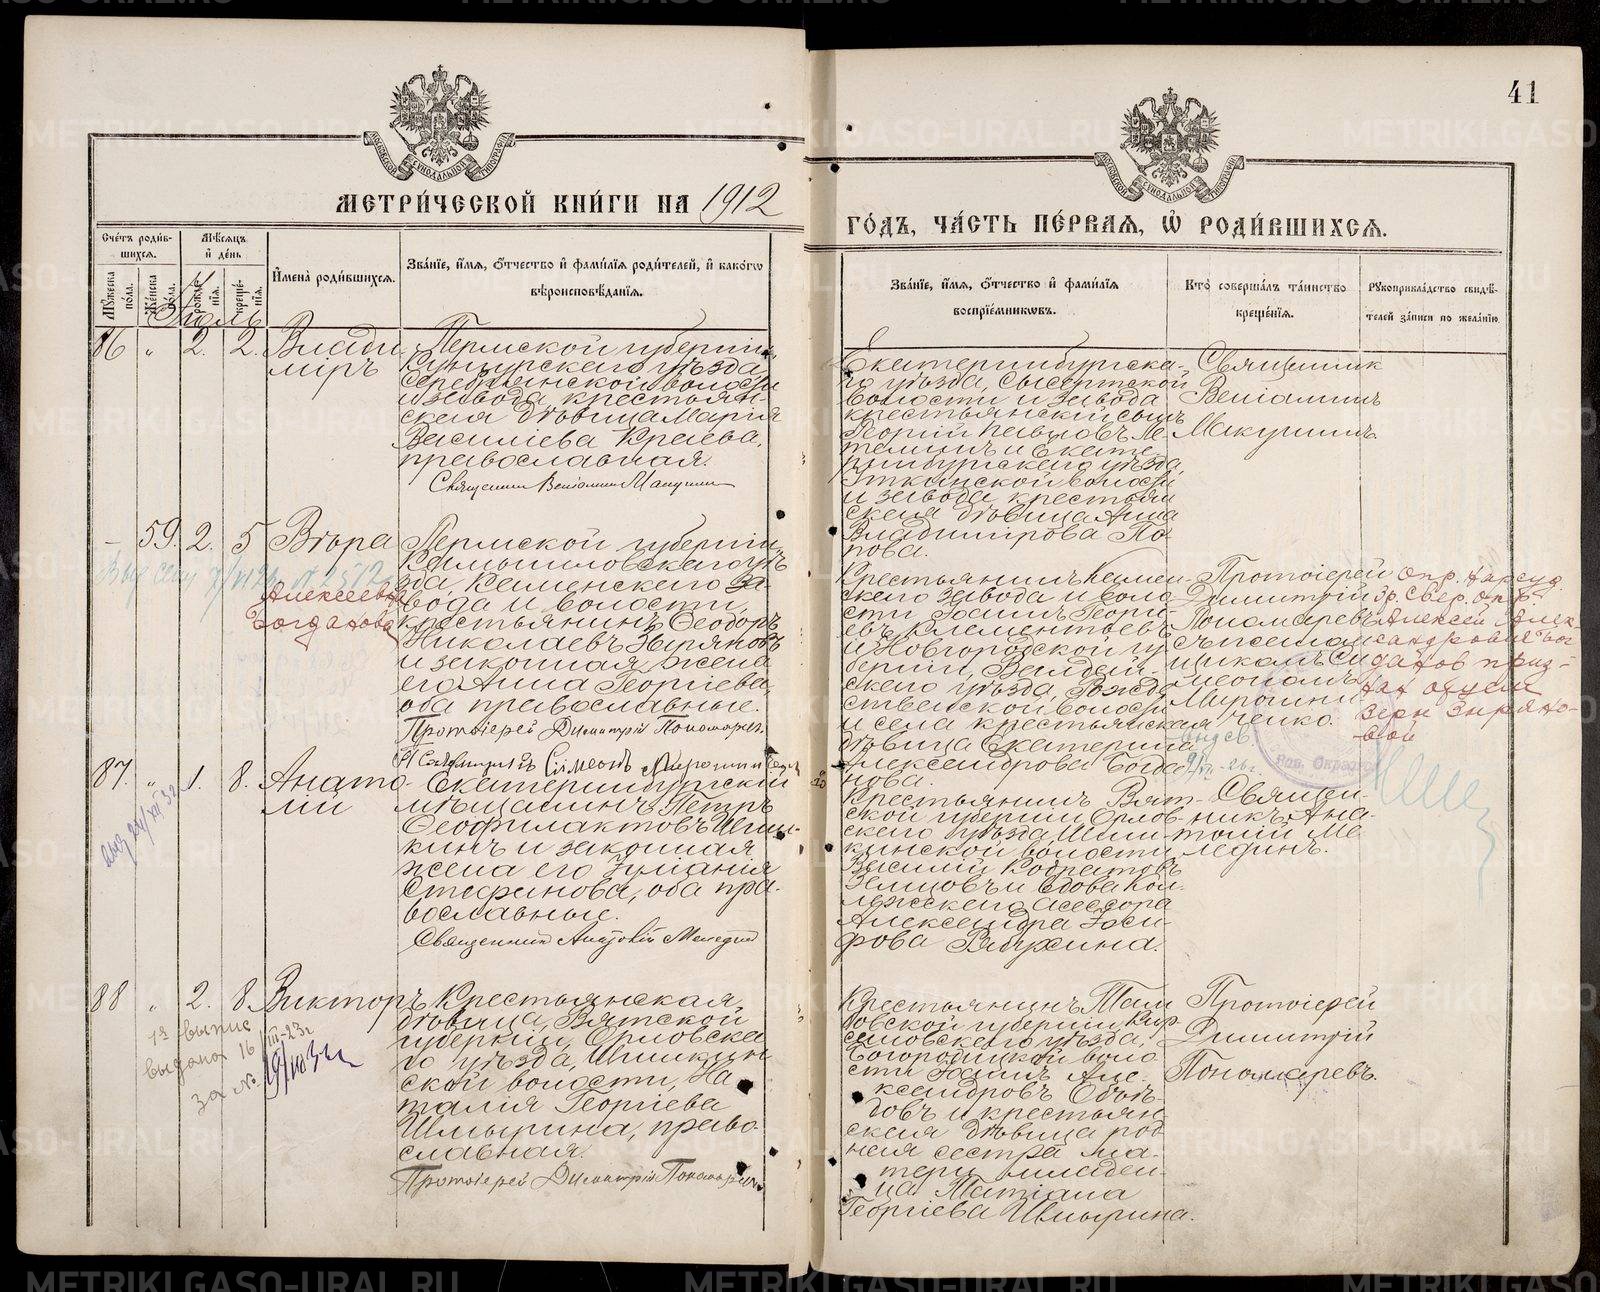 41
МЕТРИ́ЧЕСКОЙ КНИ́ГИ НА 1912
ГО́ДЪ, ЧА́СТЬ ПЕ́РВАЯ, Ѡ҆ РОДИ́ВШИХСЯ.
Сче́тъ роди́в-
шихся.
Мѣ́сяцъ
и҆ де́нь
Мꙋ́жеска по́ла.
Же́нска по́ла.
рожде́-
нїя.
креще́-
нїя.
И҆мена̀ роди́вшихся.
Зва́нїе, и҆́мя, ѻ҆́тчество и҆ фами́лїя роди́телей, и҆ како́гѡ
вѣроисповѣ́данїя.
Зва́нїе, и҆́мя, ѻ҆́тчество и҆ фами́лїя
воспрїе́мникѡвъ.
Кто̀ соверша́лъ та́инство
креще́нїя.
Рꙋкоприкла́дство свидѣ́-
телей за́писи по жела́нїю.
Іюль
86 " 2. 2.
Влади-
міръ
Пермской губерніи,
Кунгурскаго уѣзда,
Серебрянской волости
и завода, крестьян-
ская дѣвица Марія
Василиева Краева,
православная.
Священник Веніамин Макушин
Екатеринбургска-
го уѣзда, Сысертской
волости и завода
крестьянскій сынъ
Георгій Павловъ Ме-
телинъ и Екате-
ринбургскаго уѣзда,
Уткинской волости
и завода крестьян
ская дѣвица Анна
Владимірова По-
пова.
Священник
Веніаминъ
Макушинъ.
– 59. 2. 5
Вѣра
Алексеевна
Богданова
Пермской губерніи,
Камышловскаго уѣ-
зда, Каменскаго за-
вода и волости,
крестьянинъ Ѳеодоръ
Николаевъ Зыряновъ
и законная жена
его Анна Георгіева,
оба православные.
Протоіерей Димитрій Пономаревъ.
Крестьянинъ Камен-
скаго завода и воло-
сти Іоаннъ Георгі-
евъ Клементьевъ
и Новгородской гу-
берніи, Валдай-
скаго уѣзда, Рожде-
ственской волости
и села крестьянская
дѣвица Екатерина
Александрова Богда-
нова.
Протоіерей
Димитрій
Пономаревъ
съ псалом-
щикомъ Си-
меономъ
Мирошни-
ченко.
Опр. Нарсуд.
Алексей Алек
сандрович Бог
данов приз-
нан отцем
Веры Зыряно-
вой
87. " 1. 8.
Анато-
лій
Екатеринбургскій
мѣщанинъ Петръ
Ѳеофилактовъ
и законная
жена его Іуліанія
Стефанова, оба пра-
вославные.
Священник Анатолій Меледин
Крестьянинъ Вят-
ской губерніи, Орлов-
скаго уѣзда,
кинской волости
Василій Кодратовъ
Земцовъ и вдова Кол-
лежскаго Асессора
Александра Іоси-
фова Вяпухина.
Священ-
никъ Ана-
толій Ме
лединъ.
88 " 2. 8.
Викторъ
1я выпис
выдана 16/III-23г
за №
Крестьянская
дѣвица, Вятской
губерніи, Орловска
го уѣзда,
ской волости, На-
талія Георгіева
Шмырина, право-
славная.
Протоіерей Димитрій Пономаревъ
Крестьянинъ Там
бовской губерніи, Кир-
сановскаго уѣзда,
Богородицкой воло
сти Іоаннъ Але-
ксандровъ
и крестьян-
ская дѣвица род
ная сестра ма-
тери младен-
ца Татіана
Георгіева Шмырина.
Протоіерей
Димитрій
Пономаревъ.
METRIKI.GASO-URAL.RU